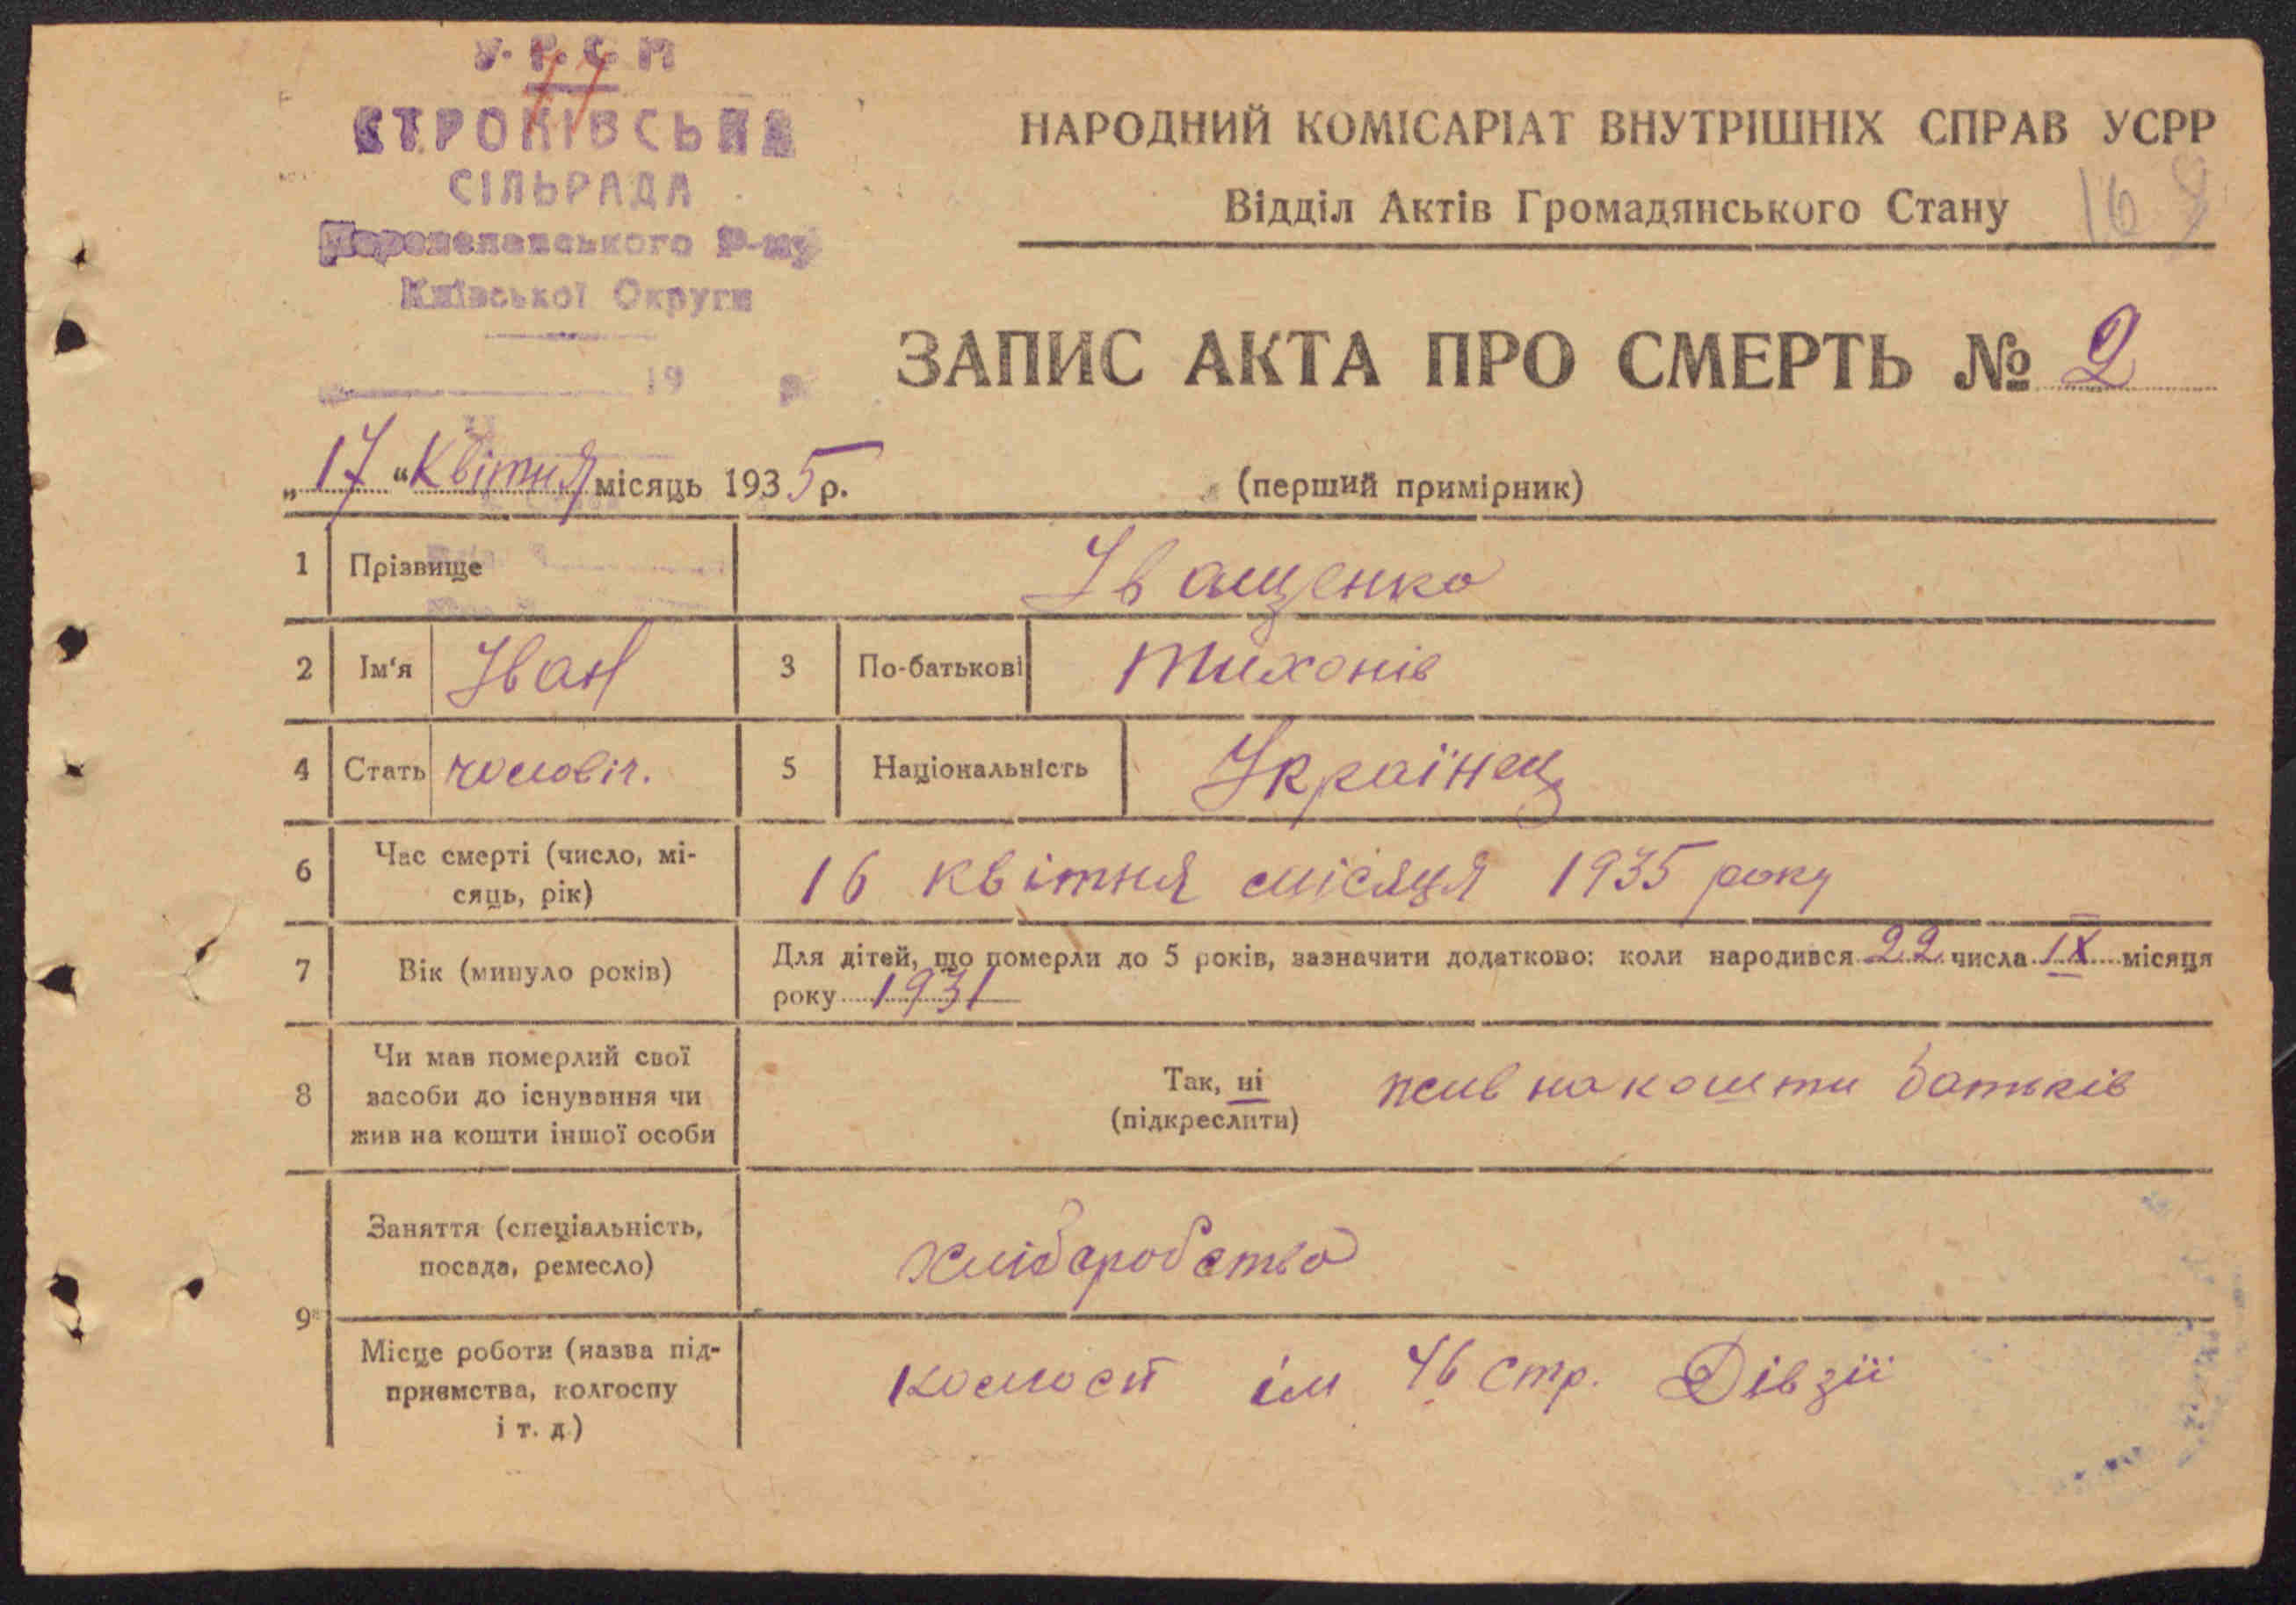 У.Р.С.Р
77
СТРОКІВСЬКА
СІЛЬРАДА
Переяславського Р-ну
Київської Округи
19 р.
НАРОДНИЙ КОМІСАРІАТ ВНУТРІШНІХ СПРАВ УСРР
Відділ Актів Громадянського Стану
16
ЗАПИС АКТА ПРО СМЕРТЬ № 2
„17“ Квітня місяць 1935 р.
(перший примірник)
1 Прізвище Іващенко
2 Ім'я Іван 3 По-батькові Тихонів
4 Стать чоловіч. 5 Національність Українец
6 Час смерті (число, мі-
сяць, рік) 16 квітня місяця 1935 року
7 Вік (минуло років) Для дітей, що померли до 5 років, зазначити додатково: коли народився 22 числа IX місяця
року 1931
8 Чи мав померлий свої
засоби до існування чи
жив на кошти іншої особи
Так, ні
(підкреслити)
жив на кошти батьків
9 Заняття (спеціальність,
посада, ремесло) хліборобство
Місце роботи (назва під-
приємства, колгоспу
і т. д.)
ім 46 стр. Дівзії